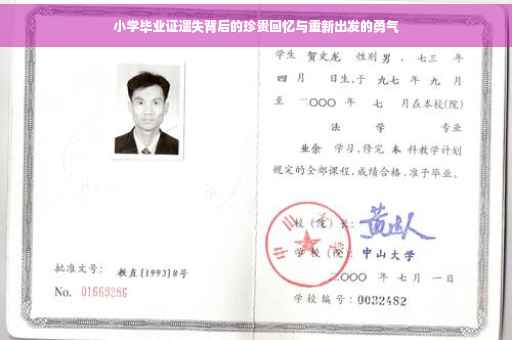 小学毕业证遗失背后的珍贵回忆与重新出发的勇气
学生 贺文龙 性别 男 、七三 年
四 月 日生,于 九七 年 九 月
至 二〇〇〇 年 七 月在本校(院)
法 学 专业
业余 学习,修完 本 科教学计划
规定的全部课程,成绩合格,准予毕业。
校(院)长:
学校(院): 中山大学
二〇〇〇 年 七 月 一 日
学校编号: 0032482
批准文号: 教直[1993]8号
No. 01669286